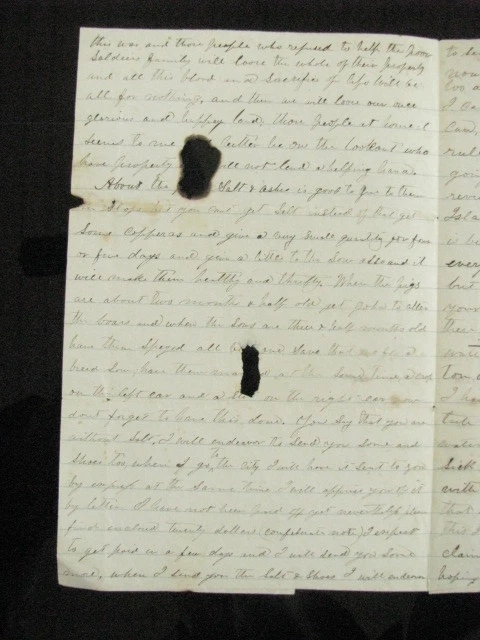 this war and those people who refused to help the poor
Soldiers family will loose the whole of their property
and all this blood and Sacrifice of life Will be
all for nothing, and then we will loose our once
glorious and happy land, those people at home
seems to me better be on the lookout who
have property will not lend a helping hand.
About the Salt & ashes is good to give to them
you cant get Salt instead of that get
Some copperas and give a very small quantity for four
or five days and give a little to the Sow also and it
will make them healthy and thrifty. When the pigs
are about two months & half old get John to alter
the boars and when the Sows are three & half months old
have them Spayed all and Save that one for a
breed Sow, have them at the Same time, a
on the left ear and a on the right ear
dont forget to have this done. You Say that you are
without Salt, I will endeavor to Send you Some and
Shoes too, when I go to the city I will have it sent to you
by express at the Same time I will apprise you of it
by letter. I have not been paid off yet
find enclosed twenty dollars (confederate note) I expect
to get paid in a few days and I will send you Some
more, when I send you the Salt & Shoes I will endeavor
to
I
I ca
rul
you
Isla
is
every
but
your
wait
I
Sick
with
that
this
claim
hoping